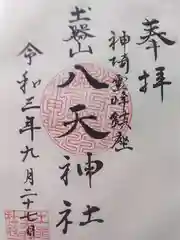 奉拝
神埼霊峰鎮座
土器山
八天神社
令和三年九月二十七日